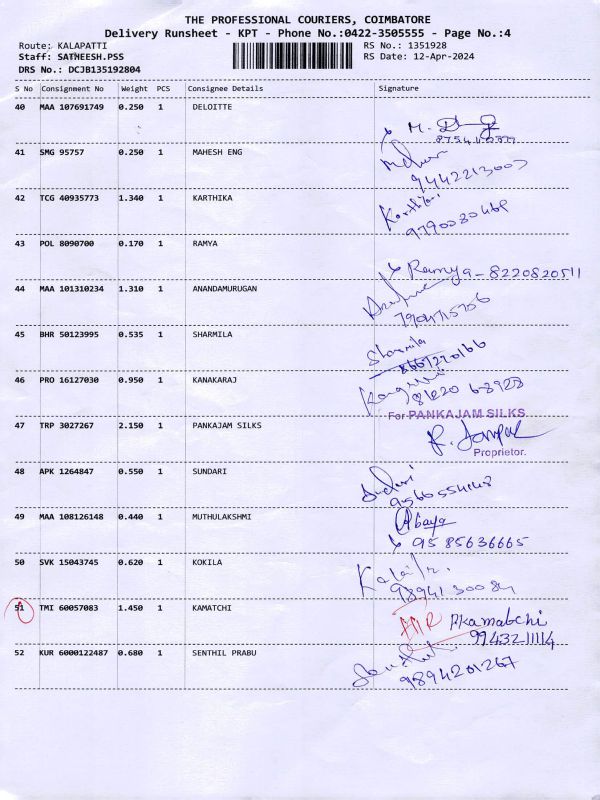 THE PROFESSIONAL COURIERS, COIMBATORE
Delivery Runsheet - KPT - Phone No.:0422-3505555 - Page No.:4
Route: KALAPATTI RS No.: 1351928
Staff: SATHEESH.PSS RS Date: 12-Apr-2024
DRS No.: DCJB135192804
S No Consignment No Weight PCS Consignee Details Signature
40 MAA 107691749 0.250 1 DELOITTE
M.
41 SMG 95757 0.250 1 MAHESH ENG
9442213003
42 TCG 40935773 1.340 1 KARTHIKA
43 POL 8090700 0.170 1 RAMYA
Ramya - 8220820511
44 MAA 101310234 1.310 1 ANANDAMURUGAN
45 BHR 50123995 0.535 1 SHARMILA
Sharmila
46 PRO 16127030 0.950 1 KANAKARAJ
For PANKAJAM SILKS
47 TRP 3027267 2.150 1 PANKAJAM SILKS
Proprietor.
48 APK 1264847 0.550 1 SUNDARI
49 MAA 108126148 0.440 1 MUTHULAKSHMI
Abaya
9585636665
50 SVK 15043745 0.620 1 KOKILA
51 TMI 60057083 1.450 1 KAMATCHI
P.Kamatchi
9943211114
52 KUR 6000122487 0.680 1 SENTHIL PRABU
9894201267